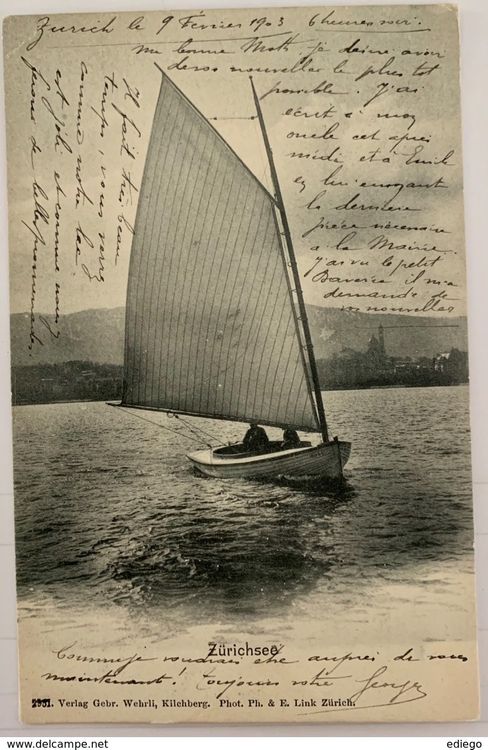 Zurich le 9 Février 1903 6 heures soir.
Ma bonne j'ai désiré avoir
de vos nouvelles le plus tôt
possible. J'ai
écrit à mon
oncle cet après
midi et à Emile
en lui envoyant
la dernière
pièce nécessaire
à la Mairie.
J'ai vu le petit
il m'a
demandé de
vos nouvelles
Il fait très beau
temps, vous verrez
comme notre lac
est joli et comme nous
ferons de belles promenades.
Zürichsee
Comme je voudrais être auprès de vous
maintenant! toujours votre George
2931. Verlag Gebr. Wehrli, Kilchberg. Phot. Ph. & E. Link Zürich.
ediego